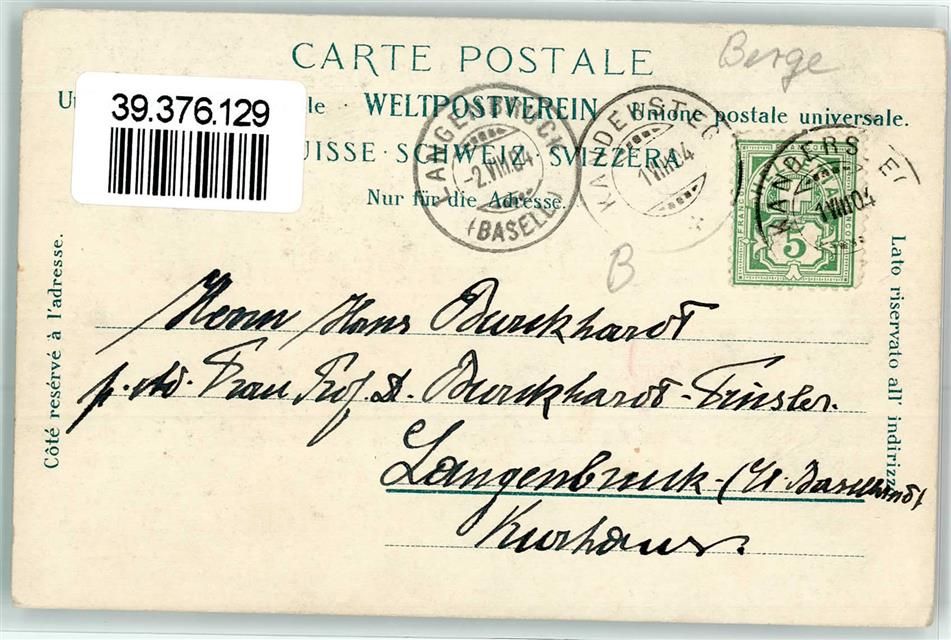 CARTE POSTALE
Berge
39.376.129
Un le · WELTPOSTVEREIN · Unione postale universale.
UISSE · SCHWEIZ · SVIZZERA
Nur für die Adresse.
LANGENBRUCK
-2.VIII.04
(BASELL)
KANDERSTEG
1.VIII.04
KANDERSTEG
1.VIII.04
FRANCO
5
B
Côté resérvé à l'adresse.
Lato riservato all' indirizz
Herrn Hans Burckhardt
p. Ad. Frau Prof. D. Burckhardt-Finsler.
Langenbruck (Kt. Baselland)
Kurhaus.